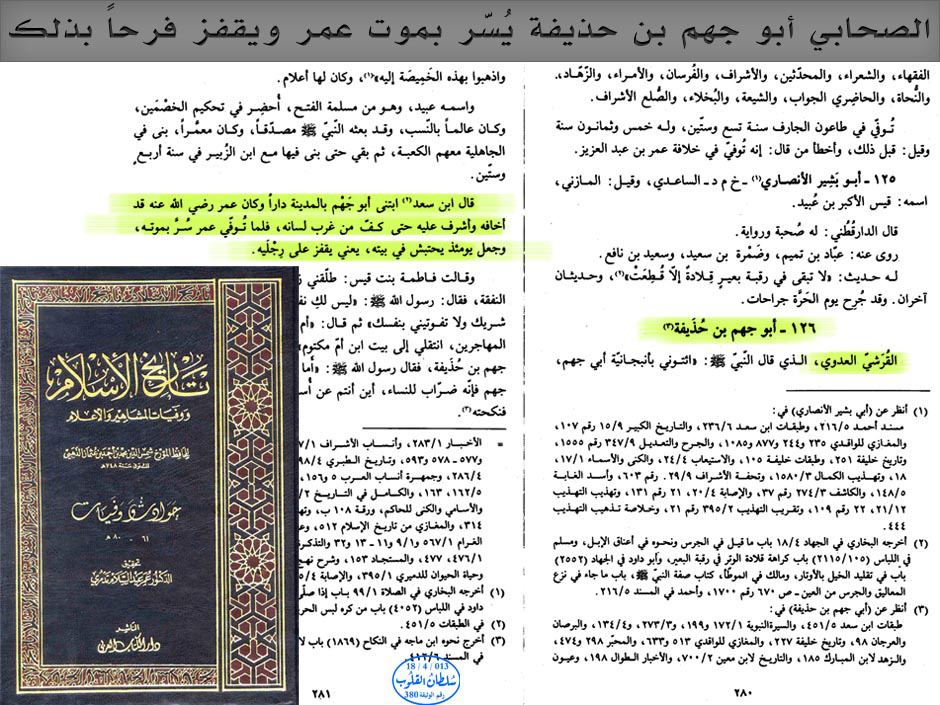 الصحابي أبو جهم بن حذيفة يُسّر بموت عمر ويقفز فرحاً بذلك
الفقهاء، والشعراء، والمحدّثين، والأشراف، والفُرسان، والأمراء، والزّهّاد،
والنُّحاة، والحاضِري الجواب، والشيعة، والبُخلاء، والصُّلع الأشراف.
تُوفّي في طاعون الجارف سنة تسع وستّين، وله خمس وثمانون سنة
وقيل: قبل ذلك، وأخطأ من قال: إنه تُوفّي في خلافة عمر بن عبد العزيز.
١٢٥ - أبو بَشِير الأنصاري(١) - خ م د - الساعدي، وقيل: المازني،
اسمه: قيس الأكبر بن عُبيد.
قال الدارقُطْني: له صُحبة ورواية.
روى عنه: عبّاد بن تميم، وضَمْرة بن سعيد، وسعيد بن نافع.
له حديث: «لا تبقى في رقبة بعيرٍ قِلادةٌ إلاّ قُطِعَتْ»(٢)، وحديثان
آخران. وقد جُرِح يوم الحَرَّة جراحات.
١٢٦ - أبو جهم بن حُذَيفة(٣)
القُرَشيّ العدوي، الذي قال النّبيّ ﷺ: «ائتوني بأنبجانيّة أبي جهم،
(١) أنظر عن (أبي بشير الأنصاري) في:
مسند أحمد ٢١٦/٥، وطبقات ابن سعد ٢٣٦/٦، والتاريخ الكبير ١٥/٩ رقم ١٠٧،
والمغازي للواقدي ٢٣٥ و٢٤٤ و٨٧٧ و١٠٨٥، والجرح والتعديل ٣٤٧/٩ رقم ١٥٥٥،
وتاريخ خليفة ٢٥١، وطبقات خليفة ١٠٥، والاستيعاب ٢٤/٤، والكنى والأسماء ١٧/١،
١٨، وتهذيب الكمال ١٥٨٠/٣، وتحفة الأشراف ٢٩/٩ رقم ٦٠٣، وأسد الغابة
١٤٨/٥، والكاشف ٢٧٤/٣ رقم ٣٧، والإصابة ٢٠/٤، ٢١ رقم ١٣١، وتهذيب التهذيب
٢١/١٢، ٢٢ رقم ١٠٩، وتقريب التهذيب ٣٩٥/٢ رقم ٢١، وخلاصة تذهيب التهذيب
٤٤٤.
(٢) أخرجه البخاري في الجهاد ١٨/٤ باب ما قيل في الجرس ونحوه في أعناق الإبل، ومسلم
في اللباس (٢١١٥/١٠٥) باب كراهة قلادة الوتر في رقبة البعير، وأبو داود في الجهاد (٢٥٥٢)
باب في تقليد الخيل بالأوتار، ومالك في الموطّأ، كتاب صفة النبيّ ﷺ، باب ما جاء في نزع
المعاليق والجرس من العين - ص ٦٧٠ رقم ١٧٠٠، وأحمد في المسند ٢١٦/٥.
(٣) أنظر عن (أبي جهم بن حذيفة) في:
طبقات ابن سعد ٤٥١/٥، والسيرة النبوية ١٧٢/١ و١٩٩، و٢٧٣/٣، و١٣٤/٤، والبرصان
والعرجان ٩٨، وتاريخ خليفة ٢٢٧، والمغازي للواقدي ٥١٣ و٦٣٣، والمحبّر ٢٩٨ و٤٧٤،
والزهد لابن المبارك ١٨٥، والتاريخ لابن معين ٧٠٠/٢، والأخبار الطوال ١٩٨، وعيون
٢٨٠
واذهبوا بهذه الخَمِيصَة إليه»(١)، وكان لها أعلام.
واسمه عبيد، وهو من مسلمة الفتح، أُحضِر في تحكيم الخصْمَين،
وكان عالماً بالنّسب، وقد بعثه النّبيّ ﷺ مصدّقاً، وكان معمَّراً، بنى في
الجاهلية معهم الكعبة، ثم بقي حتى بنى فيها مع ابن الزُّبير في سنة أربع
وستّين.
قال ابن سعد(٢) ابتنى أبو جَهْم بالمدينة داراً وكان عمر رضي الله عنه قد
أخافه وأشرف عليه حتى كفّ من غرب لسانه، فلما تُوفّي عمر سُرَّ بموته،
وجعل يومئذ يحتبش في بيته، يعني يقفز على رِجْلَيه.
وقالت فاطمة بنت قيس: طلّقني
النفقة، فقال: رسول الله ﷺ: «ليس لكِ
شريك ولا تفوتيني بنفسك» ثم قال:
المهاجرين، انتقلي إلى بيت ابن أمّ مكتوم»
جهم بن حُذَيفة، فقال رسول الله ﷺ: «أما
جهم فإنّه ضرّاب للنساء، أين أنتم عن
فنكحته(٣).
= الأخبار ٢٨٣/١، وأنساب الأشراف
و٥٧٧ - ٥٧٨ و٥٩٣، وتاريخ الطبري
٢٨٦/٤، وجمهرة أنساب العرب ٥ و١٥٦،
١٦٢/٥، ١٦٣، والكامل في التاريخ
والأسامي والكنى للحاكم، ورقة ١٠٨ ب،
٣١٤، والمغازي من تاريخ الإسلام ٥١٢،
الغرام ٥٦٧/١ و٩/١ - ١١ و١٣ و٣٢ والتذكرة
٤٧٦/١، ٤٧٧، والمستجاد ١٥٣، وشرح نهج
وحياة الحيوان للدميري ٣٩٥/١، والإصابة
(١) أخرجه البخاري في الصلاة ٩٩/١ باب إذا
داود في اللباس (٤٠٥٢) باب من كره لبس
(٢) في الطبقات ٤٥١/٥.
(٣) أخرج نحوه ابن ماجه في النكاح (١٨٦٩) باب
في المسند ٤١٢/٦.
٢٨١
تاريخ الإسلام
ووفيات المشاهير والأعلام
للحافظ المؤرخ شمس الدين محمد بن أحمد بن عثمان الذهبي
المتوفى سنة ٧٤٨ هـ
حوادث ووفيات
٦١ - ٨٠ هـ
تحقيق
الدكتور عمر عبد السلام تدمري
الناشر
دار الكتاب العربي
18 / 4 / 013
سُلطان القلوب
رقم الوثيقة 380